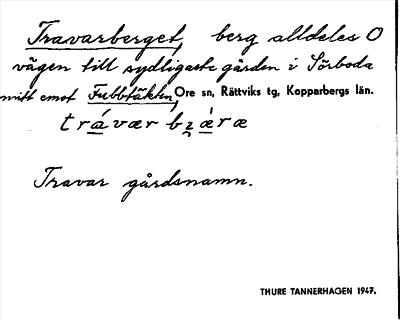 Travarberget, berg alldeles O
vägen till sydligaste gården i Sörboda
mitt emot Fubbtäkten, Ore sn, Rättviks tg, Kopparbergs län.
travær bzæræ
Travar gårdsnamn.
THURE TANNERHAGEN 1947.